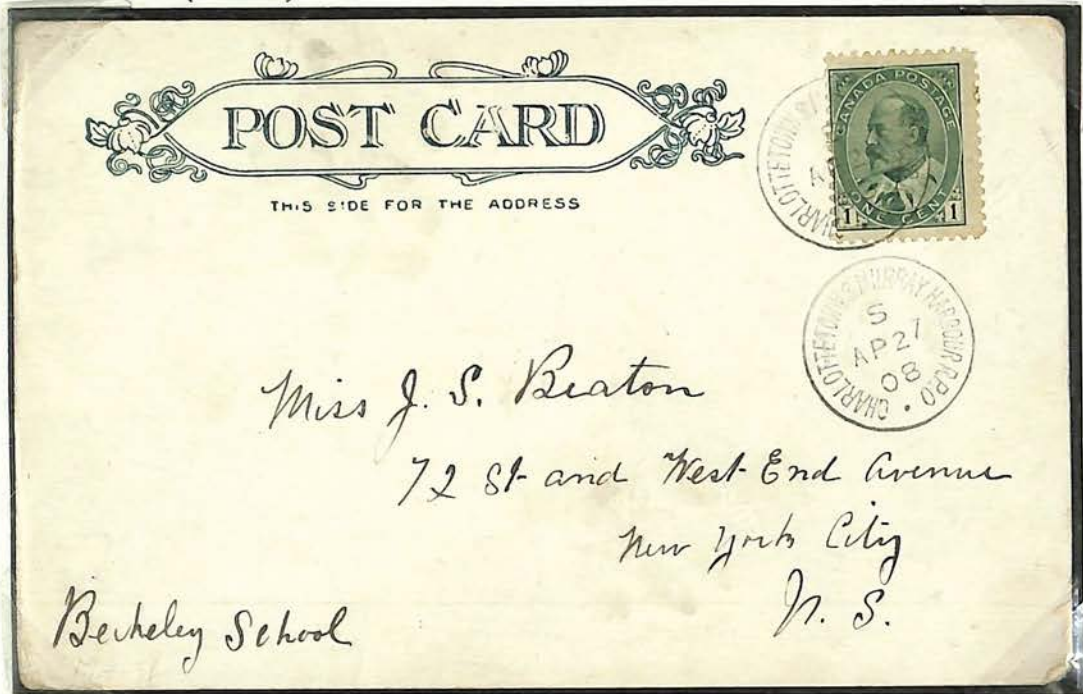 POST CARD
THIS SIDE FOR THE ADDRESS
CANADA POSTAGE
ONE CENT
1 1
CHARLOTTETOWN
CHARLOTTETOWN & MURRAY HARBOUR R.P.O.
S
AP 27
08
Miss J. S. Beaton
72 St and West End Avenue
New York City
N. S.
Berkeley School